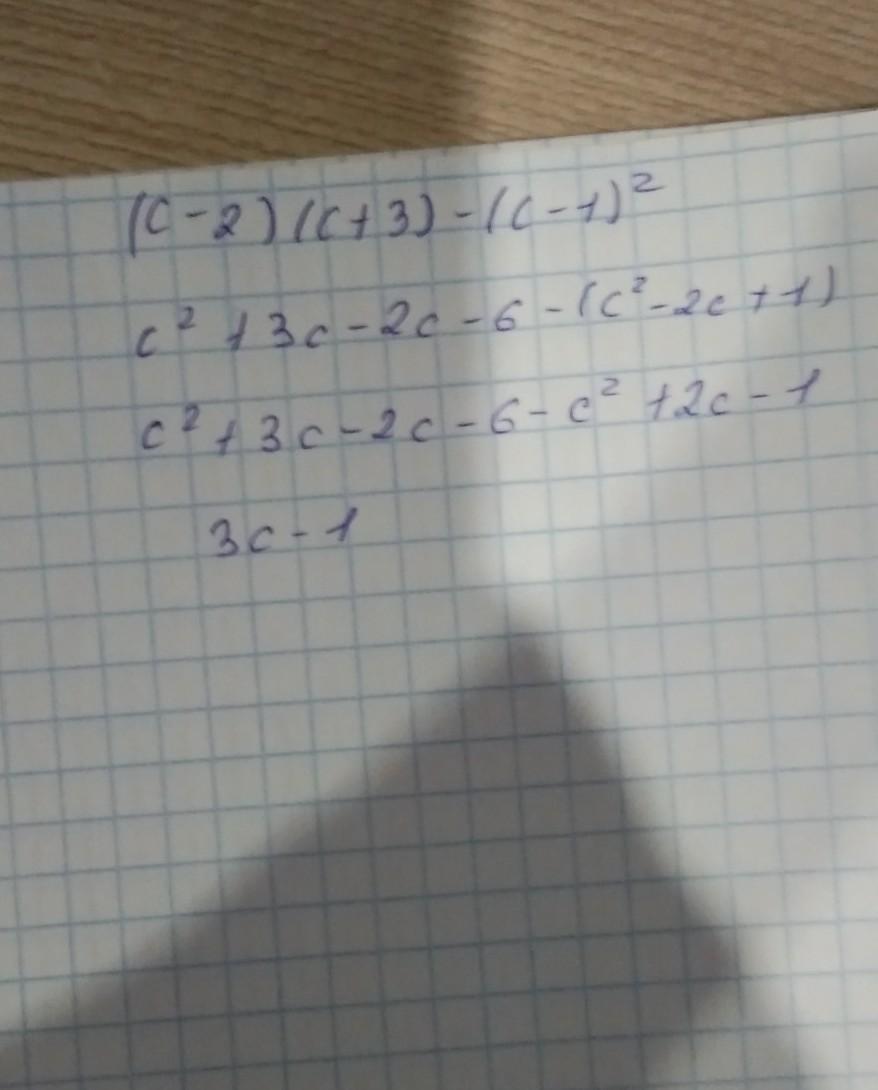 (c-2)(c+3)-(c-1)²
c²+3c-2c-6-(c²-2c+1)
c²+3c-2c-6-c²+2c-1
3c-1